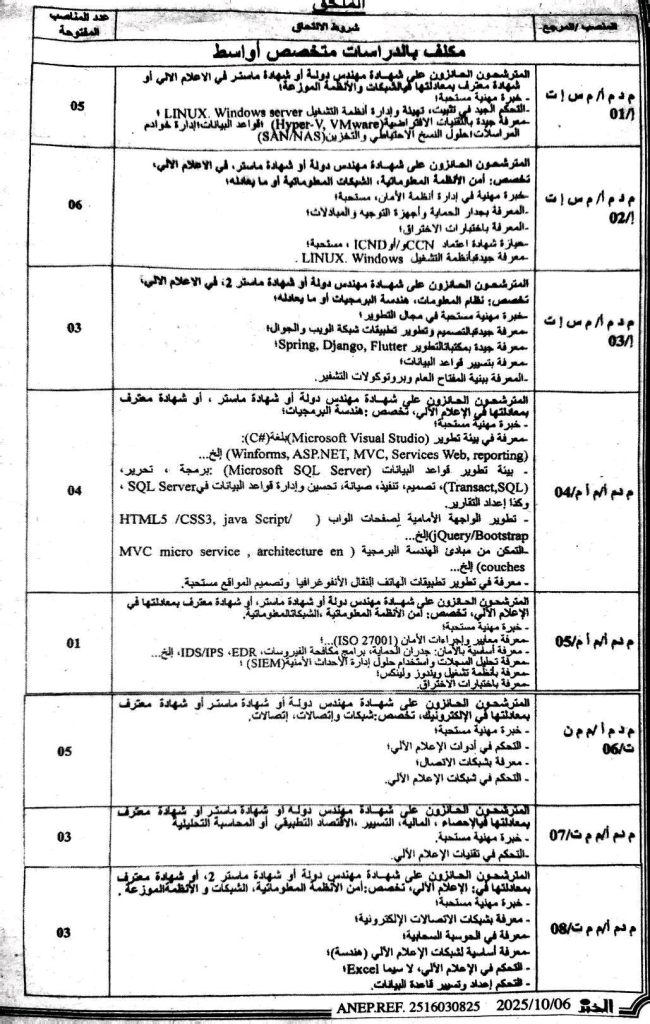 الملحق
المنصب/المرجع
شروط الالتحاق
عدد المناصب المفتوحة
مكلف بالدراسات متخصص أواسط
م د م أ/ م م س إ ت
إ/01
المترشحون الحائزون على شهادة مهندس دولة أو شهادة ماستر في الاعلام الالي أو
شهادة معترف بمعادلتها فيالشبكات والأنظمة الموزعة؛
- خبرة مهنية مستحبة؛
-التحكم الجيد في تثبيت، تهيئة وإدارة أنظمة التشغيل LINUX. Windows server ؛
-معرفة جيدة بالتقنيات الافتراضية(Hyper-V, VMware) ؛قواعد البيانات؛إدارة خوادم
المراسلات؛حلول النسخ الاحتياطي والتخزين(SAN/NAS)
05
م د م أ/ م م س إ ت
إ/02
المترشحون الحائزون على شهادة مهندس دولة أو شهادة ماستر، في الاعلام الالي،
تخصص: أمن الأنظمة المعلوماتية، الشبكات المعلوماتية أو ما يعادله؛
-خبرة مهنية في إدارة أنظمة الأمان، مستحبة؛
-المعرفة بجدار الحماية وأجهزة التوجيه والمبادلات؛
-المعرفة باختبارات الاختراق؛
-حيازة شهادة اعتماد CCNو/أوICND ، مستحبة؛
-معرفة جيدةبأنظمة التشغيل LINUX. Windows .
06
م د م أ/ م م س إ ت
إ/03
المترشحون الحائزون على شهادة مهندس دولة أو شهادة ماستر 2، في الاعلام الالي،
تخصص: نظام المعلومات، هندسة البرمجيات أو ما يعادله؛
-خبرة مهنية مستحبة في مجال التطوير؛
-معرفة جيدةبالتصميم وتطوير تطبيقات شبكة الويب والجوال؛
-معرفة جيدة بمكتباتالتطوير Spring, Django, Flutter؛
-معرفة بتسيير قواعد البيانات؛
-المعرفة ببنية المفتاح العام وبروتوكولات التشفير.
03
م د م أ/ م أ م/04
المترشحون الحائزون على شهادة مهندس دولة أو شهادة ماستر ، أو شهادة معترف
بمعادلتها في الإعلام الآلي، تخصص :هندسة البرمجيات؛
- خبرة مهنية مستحبة؛
-معرفة في بيئة تطوير (Microsoft Visual Studio)بلغة(C#):
(Winforms, ASP.NET, MVC, Services Web, reporting) إلخ...
- بيئة تطوير قواعد البيانات (Microsoft SQL Server) :برمجة ، تحرير،
(Transact,SQL)، تصميم، تنفيذ، صيانة، تحسين وإدارة قواعد البيانات فيSQL Server ،
وكذا إعداد التقارير.
- تطوير الواجهة الأمامية لصفحات الواب ( HTML5 /CSS3, java Script/
jQuery/Bootstrap)إلخ...
-التمكن من مبادئ الهندسة البرمجية ( MVC micro service , architecture en
couches) إلخ...
- معرفة في تطوير تطبيقات الهاتف النقال الأنفوغرافيا وتصميم المواقع مستحبة.
04
م د م أ/ م أ م/05
المترشحون الحائزون على شهادة مهندس دولة أو شهادة ماستر، أو شهادة معترف بمعادلتها في
الإعلام الآلي، تخصص: أمن الأنظمة المعلوماتية ،الشبكاتالمعلوماتية.
- خبرة مهنية مستحبة؛
-معرفة معايير وإجراءات الأمان (ISO 27001)...؛
-معرفة أساسية بالأمان: جدران الحماية، برامج مكافحة الفيروسات، IDS/IPS ،EDR، إلخ...
-معرفة تحليل السجلات واستخدام حلول إدارة الأحداث الأمنية(SIEM)؛
-معرفة بأنظمة تشغيل ويندوز ولينكس؛
-معرفة باختبارات الاختراق.
01
م د م أ/ م م ن
ت/06
المترشحون الحائزون على شهادة مهندس دولة أو شهادة ماستر أو شهادة معترف
بمعادلتها في الإلكترونيك، تخصص:شبكات وإتصالات، إتصالات.
- خبرة مهنية مستحبة؛
- التحكم في أدوات الإعلام الآلي؛
- معرفة بشبكات الاتصال؛
- التحكم في شبكات الإعلام الآلي.
05
م د م أ/ م م ت/07
المترشحون الحائزون على شهادة مهندس دولة أو شهادة ماستر او شهادة معترف
بمعادلتها فيالإحصاء ، المالية، التسيير ،الاقتصاد التطبيقي أو المحاسبة التحليلية
- خبرة مهنية مستحبة.
-التحكم في تقنيات الإعلام الآلي.
03
م د م أ/ م م ت/08
المترشحون الحائزون على شهادة مهندس دولة أو شهادة ماستر 2، أو شهادة معترف
بمعادلتها في: الإعلام الآلي، تخصص:أمن الأنظمة المعلوماتية، الشبكات و الأنظمةالموزعة .
- خبرة مهنية مستحبة؛
- معرفة بشبكات الاتصالات الإلكترونية؛
-معرفة في الحوسبة السحابية؛
-معرفة أساسية لشبكات الإعلام الآلي (هندسة)؛
- التحكم في الإعلام الآلي، لا سيما Excel؛
- التحكم إعداد وتسيير قاعدة البيانات.
03
الخبر 2025/10/06 ANEP.REF. 2516030825